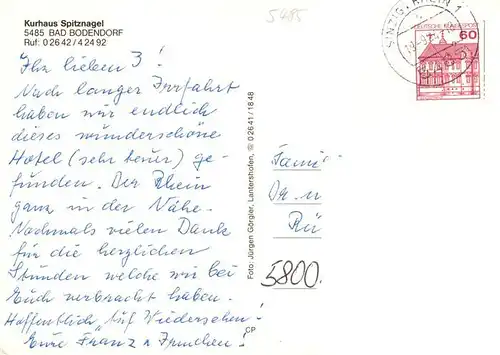 Kurhaus Spitznagel
5485 BAD BODENDORF
Ruf: 0 26 42 / 4 24 92
5485
SINZIG, RHEIN 1
DEUTSCHE BUNDESPOST
60
Ihr lieben 3!
Nach langer Irrfahrt
haben wir endlich
dieses wunderschöne
Hotel (sehr teuer) ge-
funden. Der Rhein
ganz in der Nähe.
Nochmals vielen Dank
für die herzlichen
Stunden welche wir bei
Euch verbracht haben.
Hoffentlich "Auf Wiedersehen"!
Eure Franz u
Foto: Jürgen Görgler, Lantershofen, ✆ 0 26 41 / 18 48
CP
Fami
Dr. u
Rü
5800.